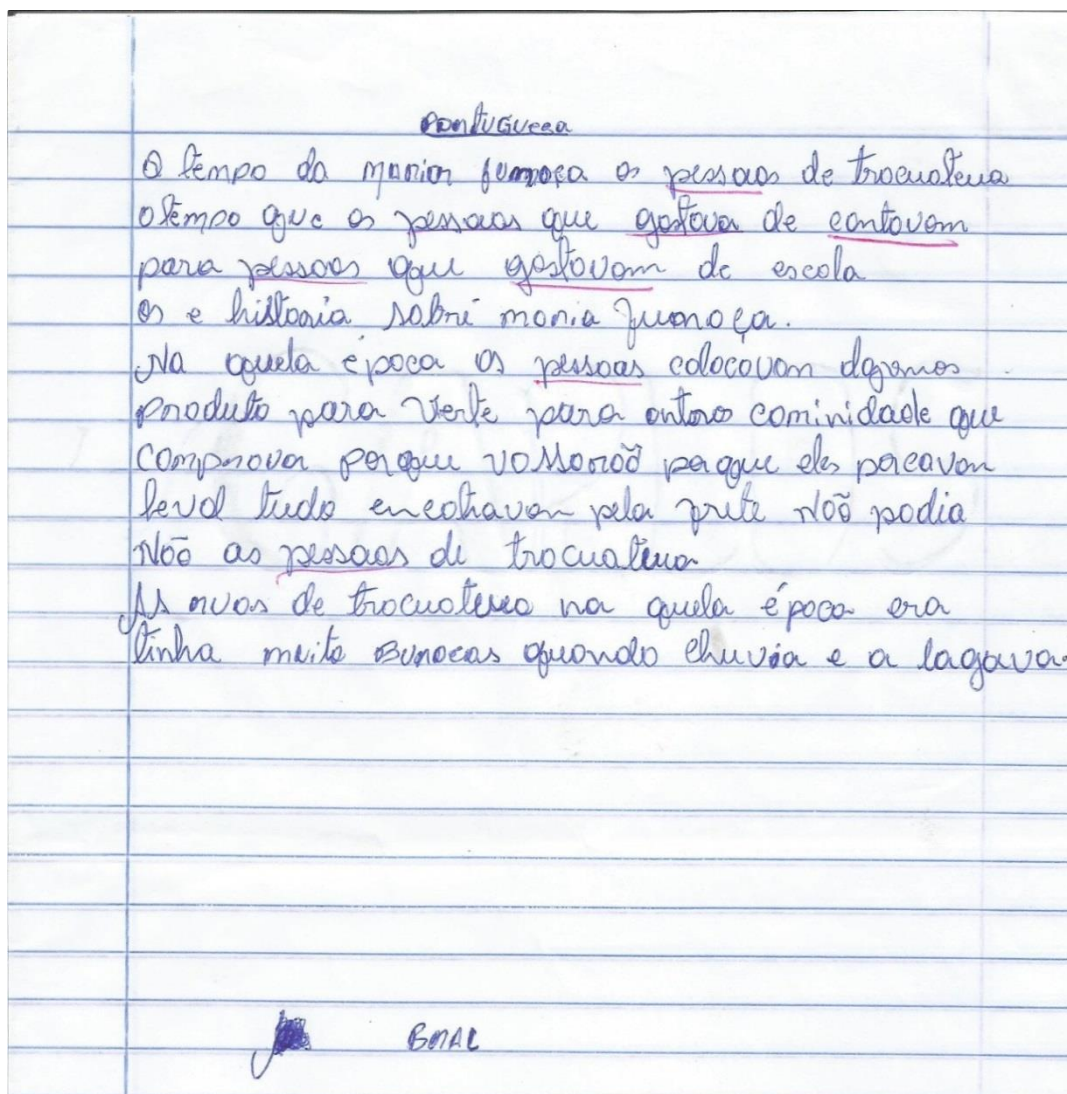 Pontuguesa
O tempo da marior fumaça as pessoas de tracuateua
o tempo que as pessoas que gostava de contavam
para pessoas que gostavam de escola
as e histoaia sobri maria fumaça.
Na quela época as pessoas colocavam
produto para verte para cominidade que
compnova porque porque eles
leval tudo pela Não podia
Não as pessoas de tracuateua
As nuas de tracuateua na quela época era
tinha muito Bunacas quando chuvia e a lagava.